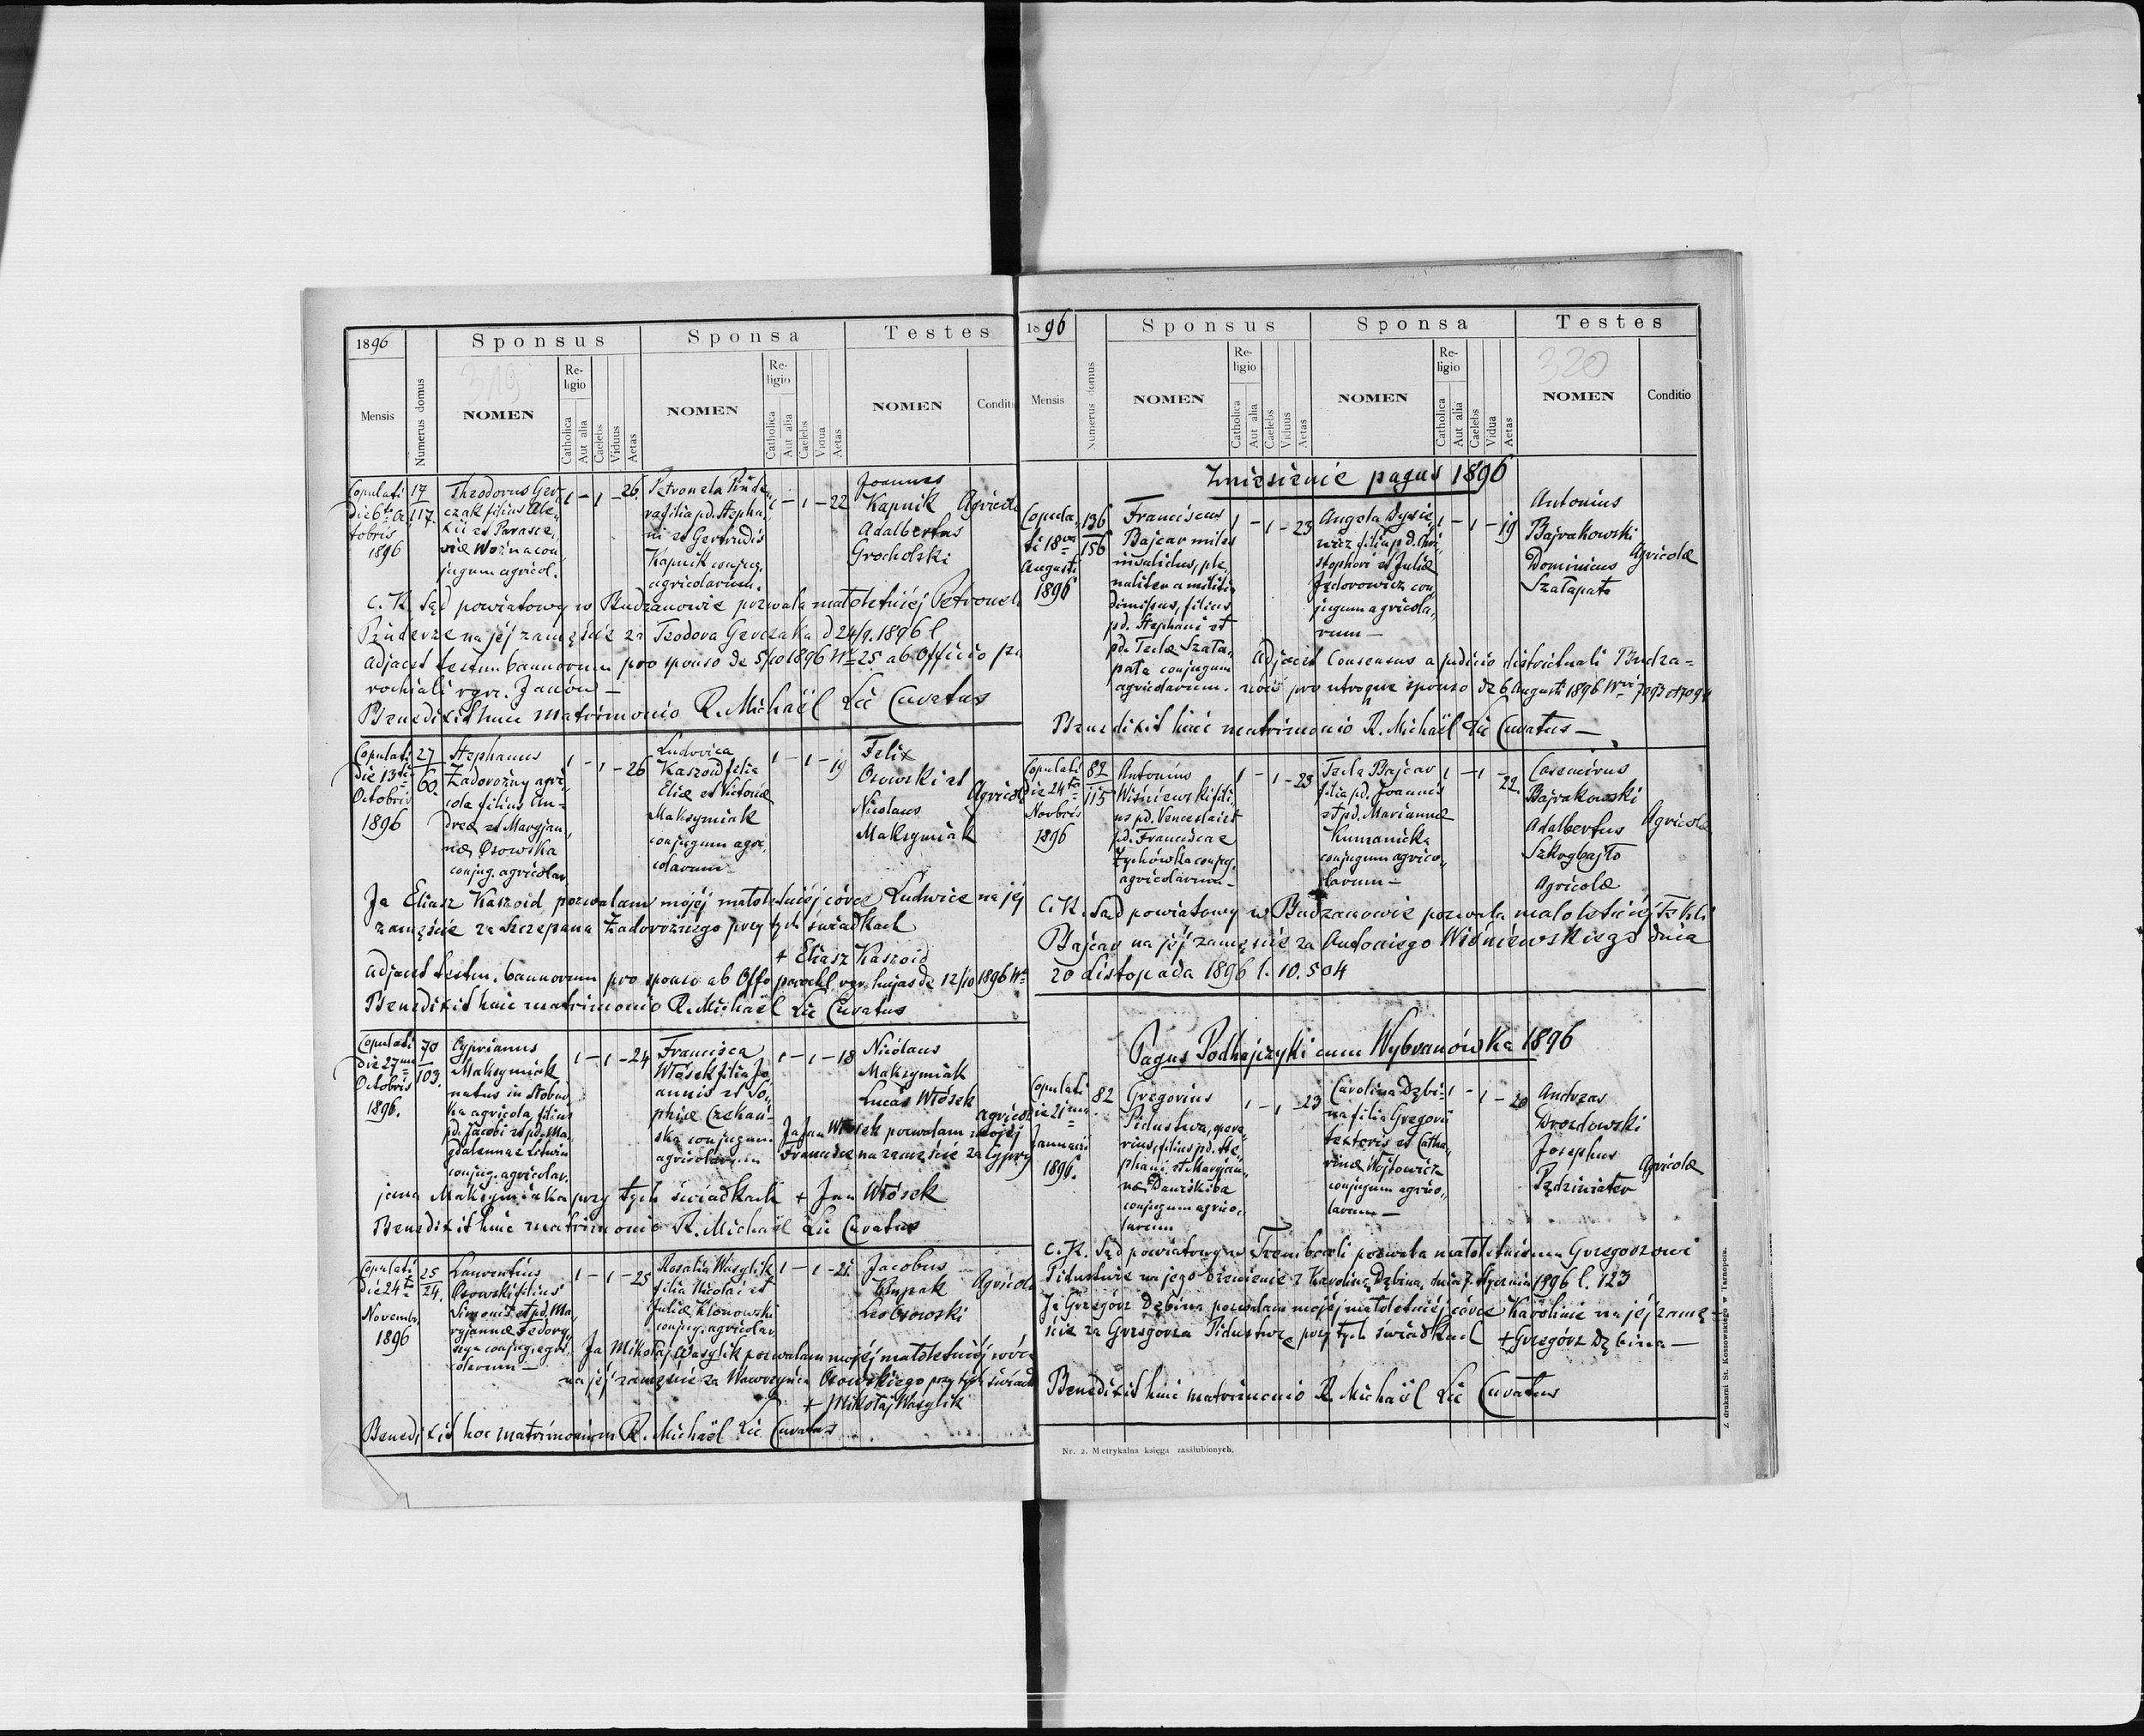 1896
Sponsus
Sponsa
Testes
Mensis
Numerus domus
319
NOMEN
Religio
Catholica
Aut alia
Caelebs
Viduus
Aetas
NOMEN
Religio
Catholica
Aut alia
Caelebs
Vidua
Aetas
NOMEN
Conditio
Copulati
die 6ta Oc
tobris
1896
17
117.
Theodorus Ger
czak filius Ale
xii et Parasce
viæ Woźna con
jugum agricol.
1 - 1 - 26.
Petronela
ra filia pd. Stepha
ni et Gertrudis
Kapnik conjug.
agricolarum.
1 - 1 - 22
Joannes
Kapnik
Adalbertus
Grocholski
Agricolæ
C. K. Sąd powiatowy w Budzanowie pozwala małoletniéj Petroneli
na jéj zamęście za Teodora Gerczaka d 24/9. 1896 l
Adjacet testim. bannorum pro sponso de 5/10 1896 Nr 25 ab Officio pa
rochiali rgr. Janów —
Benedixit huic matrimonio R. Michaël Lic Curatus
Copulati
die 13tia
Octobris
1896
27
60.
Stephanus
Zadorożny agri
cola filius An-
dreæ et Maryjan
næ Osowska
conjug. agricolar.
1 - 1 - 26
Ludovica
Kaszoid filia
Eliæ et Victoriæ
Maksymiak
conjugum agri
colarum
1 - 1 - 19
Felix
Osowski et
Nicolaus
Maksymiak
Agricolæ
Ja Eliasz Kaszoid pozwalam mojéj małoletniéj córce Ludwice na jéj
zamęście za Szczepana Zadorożnego przy tych świadkach
+ Eliasz Kaszoid
Adjacet testim. bannorum pro sponso ab Offo parochl. rgr. hujas de 12/10 1896 Nr
Benedixit huic matrimonio R. Michaël Lic Curatus
Copulati
die 27ma
Octobris
1896.
70
103.
Cyprianus
Maksymiak
natus in Słobud
ka agricola, filius
pd. Jacobi et pd. Ma
gdalennæ Litwin
conjug. agricolar.
1 - 1 - 24
Francisca
Włosek filia Jo
annis et So
phiæ Czekań
ska conjugum
agricolarum
1 - 1 - 18
Nicolaus
Maksymiak
Lucas Włosek
Agricolæ
Ja Jan Włosek pozwalam mojéj
Franciśce na zamęście za Cypry
jana Maksymiaka przy tych świadkach + Jan Włosek
Benedixit huic matrimonio R. Michaël Lic Curatus
Copulati
die 24ta
Novembr.
1896
25
24.
Laurentius
Osowski filius
Simonis et pd. Ma
ryjannæ Fedory
szyn conjug. agri
colarum —
1 - 1 - 25
Rosalia Wasylik
filia Nicolai et
Juliæ Klonowski
conjug. agricolar.
1 - 1 - 21.
Jacobus
Leo Osowski
Agricolæ
Ja Mikołaj Wasylik pozwalam mojéj małoletniéj córce
na jéj zamęście za Wawrzyńca Osowskiego przy tych świad
+ Mikołaj Wasylik
Benedixit hoc matrimonium R. Michaël Lic Curatus
1896
Sponsus
Sponsa
Testes
Mensis
Numerus domus
NOMEN
Religio
Catholica
Aut alia
Caelebs
Viduus
Aetas
NOMEN
Religio
Catholica
Aut alia
Caelebs
Vidua
Aetas
320
NOMEN
Conditio
Zniesienie pagus 1896
Copula
ti 18va
Augusti
1896
136
156
Franciscus
Bajcar miles
invalidus, ple
naliter a militia
dimissus, filius
pd. Stephani et
pd. Teclæ Szała
pata conjugum
agricolarum.
1 - 1 - 23
Angela Dysie
wicz filia pd. Chri
stophori et Juliæ
Jędorowicz con
jugum agricola
rum —
1 - 1 - 19
Antonius
Bajrakowski
Dominicus
Szałapato
Agricolæ
Adjacet Consensus a judicio districtuali Budza=
nów pro utroque sponso de 6 Augusti 1896 Nri 7093 et 7094
Benedixit huic matrimonio R. Michaël Lic Curatus —
Copulati
die 24ta
Novbris
1896
82
115
Antonius
Wiśniewski fili
us pd. Venceslai et
pd. Franciscae
Zychówka conjug.
agricolarum —
1 - 1 - 23
Tecla Bajcar
filia pd. Joannis
et pd. Mariannæ
Kumanicka
conjugum agrico
larum —
1 - 1 - 22.
Casemirus
Bajrakowski
Adalbertus
Agricolæ
Agricolæ
C. K. Sąd powiatowy w Budzanowie pozwala małoletniéj Tekli
Bajcar na jéj zamęście za Antoniego Wiśniewskiego dnia
20 Listopada 1896 l. 10.504
Pagus Podhajczyki cum Wybranówka 1896
Copulati
die 21ma
Januarii
1896.
82
Gregorius
Pidustwa, opera
rius, filius pd. Ste
phani et Maryjan
næ
conjugum agrico
larum
1 - 1 - 23
Carolina Dębi
na filia Gregorii
textoris et Catha
rinæ Wojtowicz
conjugum agrico
larum —
1 - 1 - 20
Andreas
Drozdowski
Josephus
Agricolæ
C. K. Sąd powiatowy w Trembowli pozwala małoletniemu Grzegorzowi
Pidustwie na jego ożenienie z Karoliną Dębiną, dnia 7. Stycznia 1896 l. 123
Ja Grzegórz Dębina pozwalam mojéj małoletniéj córce Karolinie na jéj zamę-
ście za Grzegorza Pidustwę przy tych świadkach + Grzegórz Dębina —
Benedixit huic matrimonio R. Michaël Lic Curatus
Nr. 2. Metrykalna księga zaślubionych.
Z drukarni St. Kossowskiego w Tarnopolu.